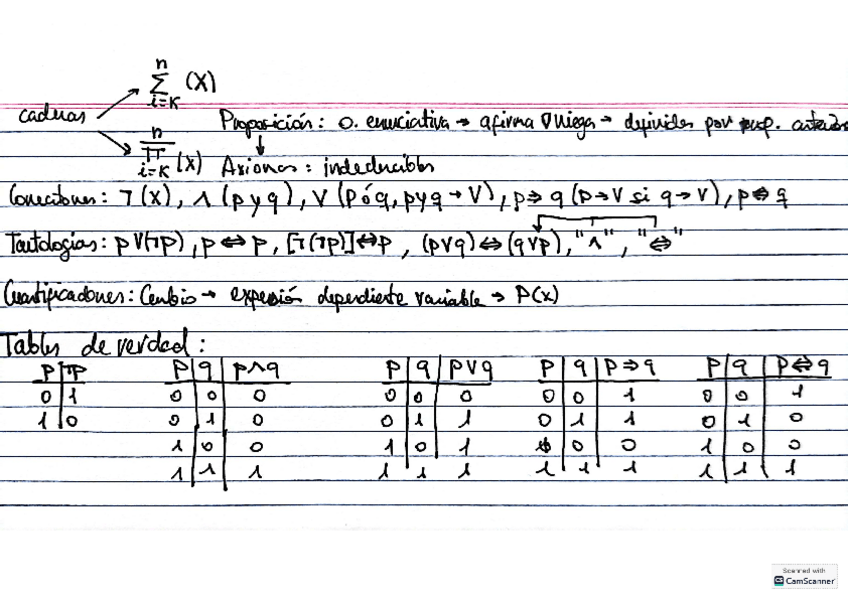 n
Σ (x)
i=K
cadenas
Proposición: o. enunciativa → afirma ∇ niega → definidas por prop. anteriores
n
π (x) Axiomas: indeducibles
i=K
Conectores: ¬(x), ∧ (p y q), ∨ (p ó q, p y q → V), p⇒q (p→V si q→V), p⇔q
Tautologías: p∨(¬p), p⇔p, [¬(¬p)]⇔p, (p∨q)⇔(q∨p), "∧", "⇔"
Cuantificadores: Cambio → expresión dependiente variable → P(x)
Tablas de verdad:
p ¬p p q p∧q p q p∨q p q p⇒q p q p⇔q
0 1 0 0 0 0 0 0 0 0 1 0 0 1
1 0 0 1 0 0 1 1 0 1 1 0 1 0
1 0 0 1 0 1 1 0 0 1 0 0
1 1 1 1 1 1 1 1 1 1 1 1
Scanned with
CamScanner